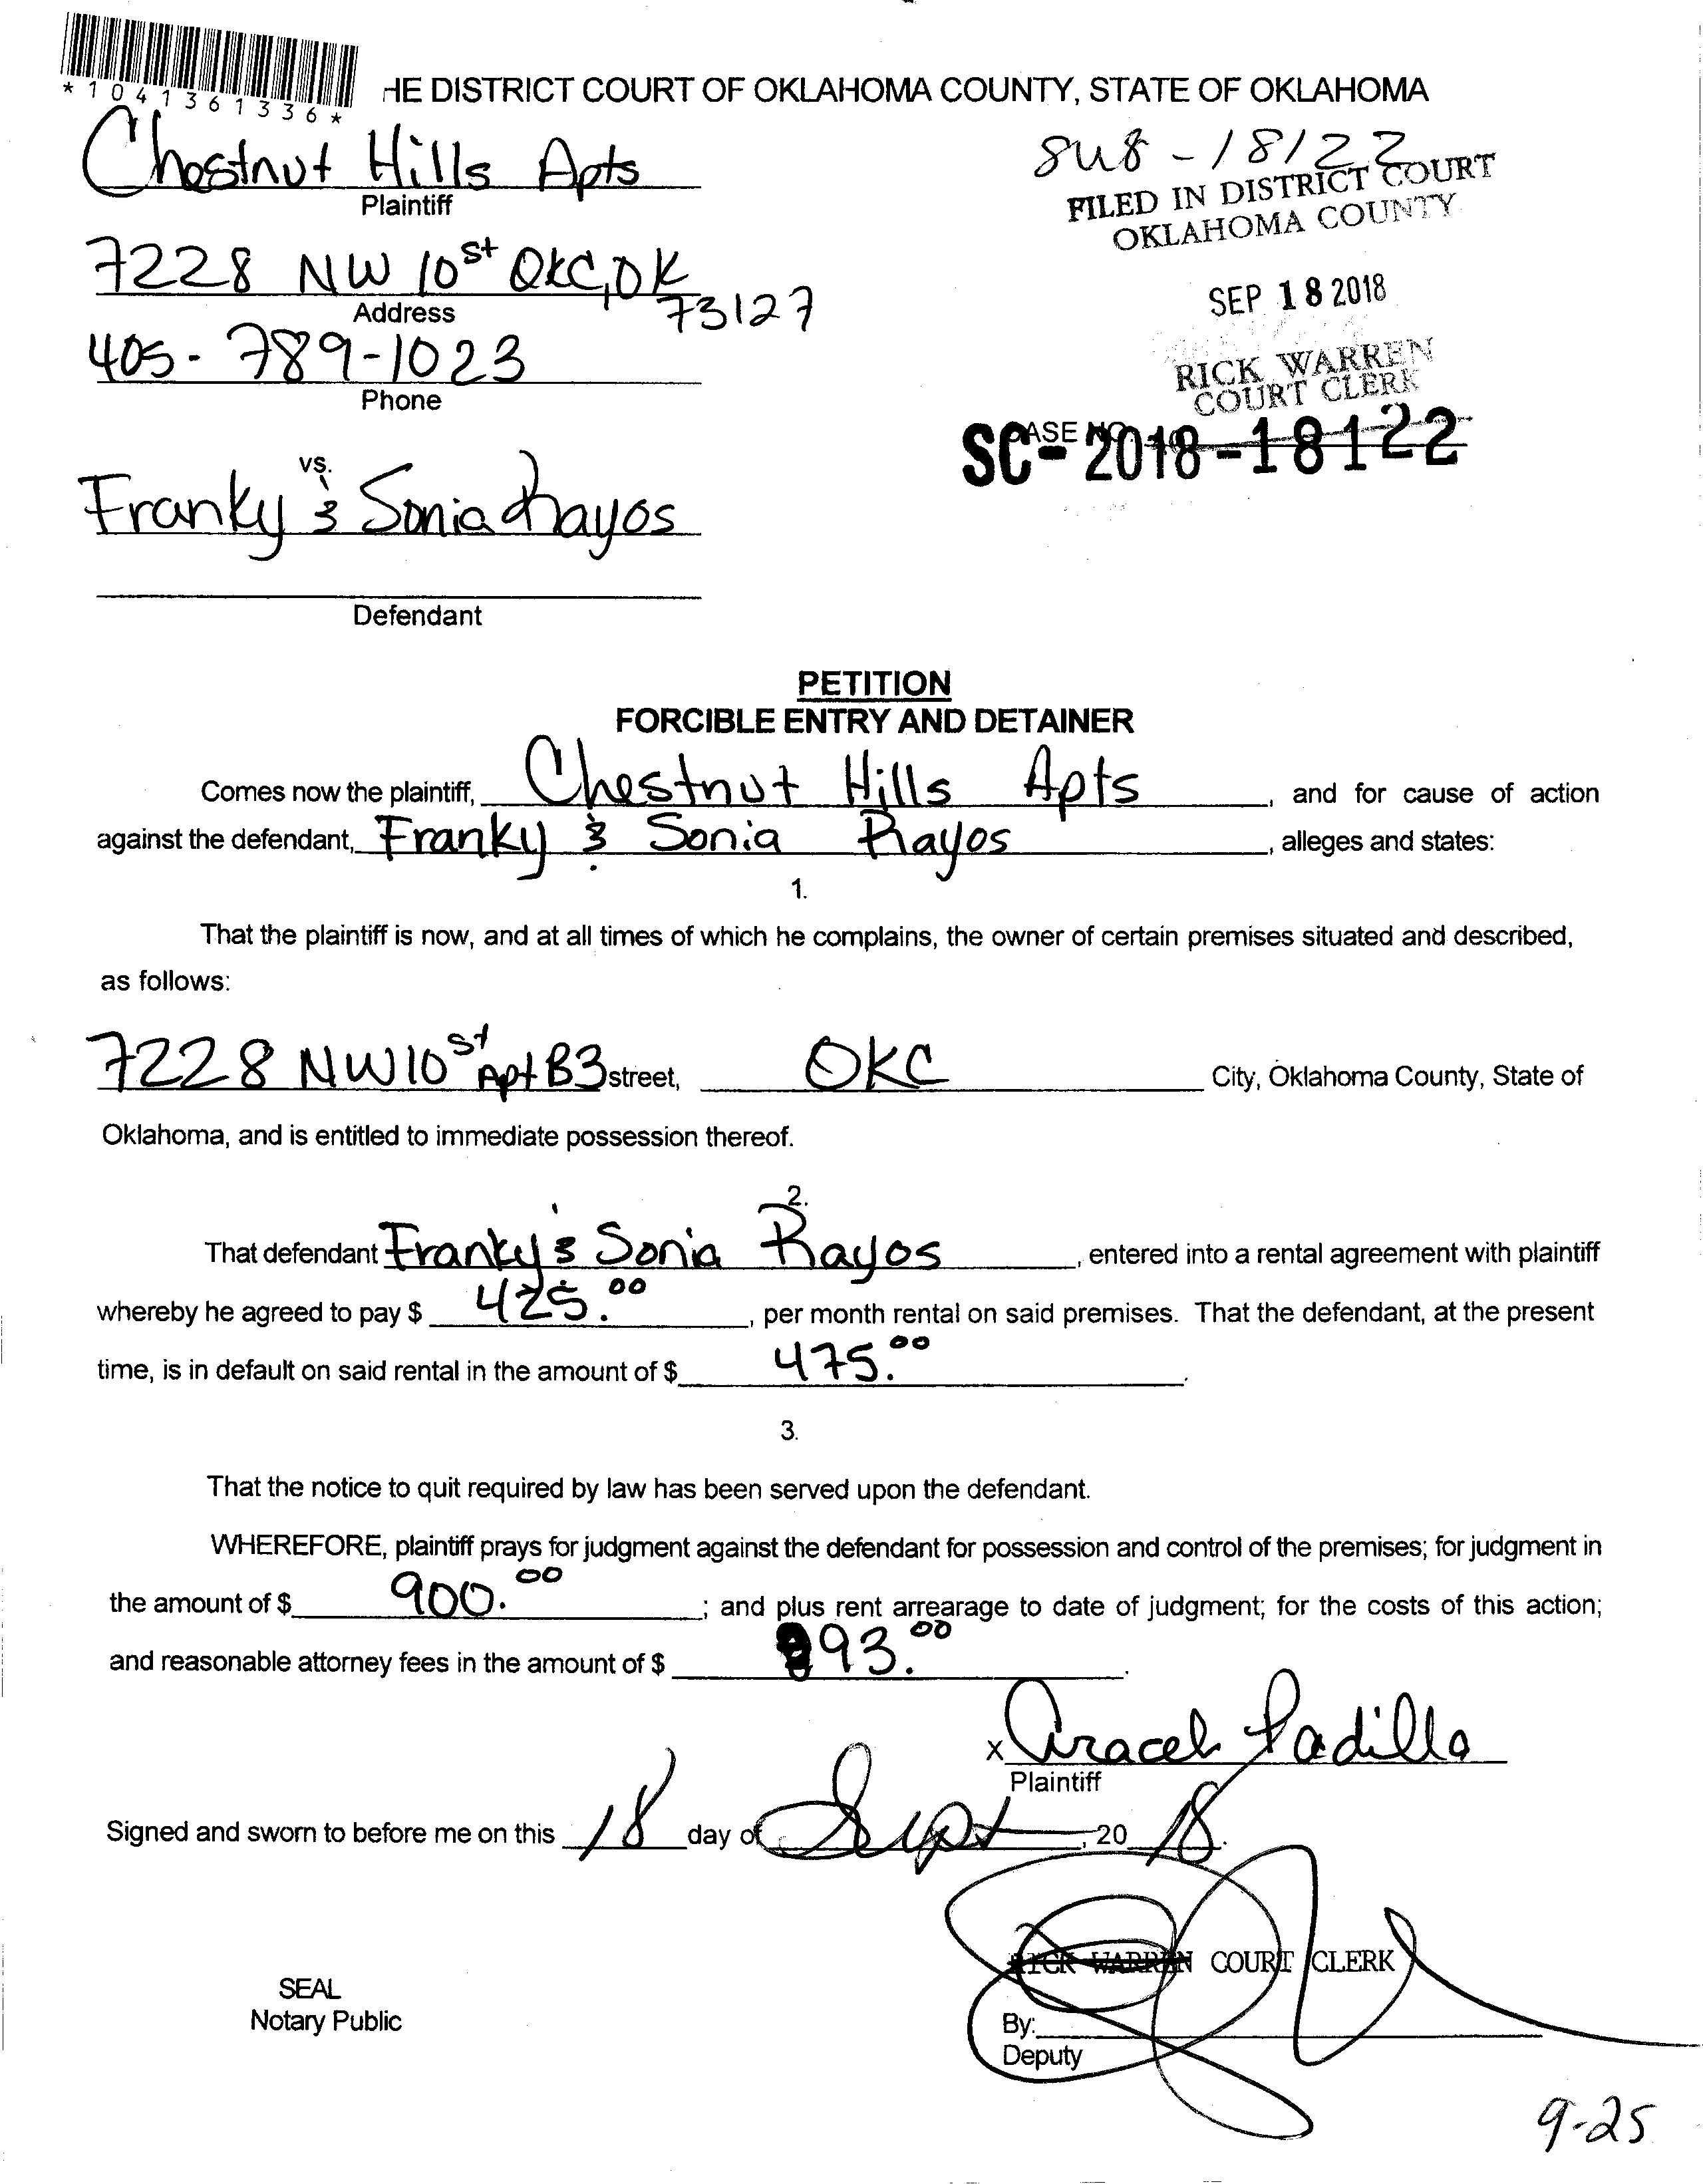 *1041361336*
HE DISTRICT COURT OF OKLAHOMA COUNTY, STATE OF OKLAHOMA
Chestnut Hills Apts
Plaintiff
7228 NW 10st OKC, OK
73127
Address
405-789-1023
Phone
18122
FILED IN DISTRICT COURT
OKLAHOMA COUNTY
SEP 18 2018
RICK WARREN
COURT CLERK
CASE NO.
SC-2018-18122
vs.
Franky & Sonia Rayos
Defendant
PETITION
FORCIBLE ENTRY AND DETAINER
Comes now the plaintiff, Chestnut Hills Apts, and for cause of action
against the defendant, Franky & Sonia Rayos, alleges and states:
1.
That the plaintiff is now, and at all times of which he complains, the owner of certain premises situated and described,
as follows:
7228 NW 10st Apt B3 street, OKC City, Oklahoma County, State of
Oklahoma, and is entitled to immediate possession thereof.
2.
That defendant Franky & Sonia Rayos, entered into a rental agreement with plaintiff
whereby he agreed to pay $ 425.00, per month rental on said premises. That the defendant, at the present
time, is in default on said rental in the amount of $ 475.00.
3.
That the notice to quit required by law has been served upon the defendant.
WHEREFORE, plaintiff prays for judgment against the defendant for possession and control of the premises; for judgment in
the amount of $ 900.00; and plus rent arrearage to date of judgment; for the costs of this action;
and reasonable attorney fees in the amount of $ 93.00.
X Araceli Padilla
Plaintiff
Signed and sworn to before me on this 18 day of Sept, 20 18.
RICK WARREN COURT CLERK
SEAL
Notary Public
By:
Deputy
9-25